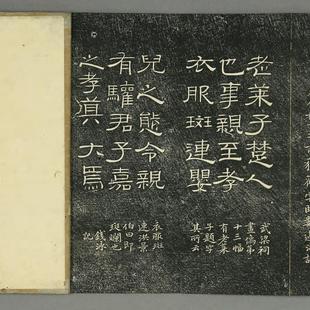 老萊子楚人
也事親至孝
衣服斑連嬰
兒之態令親
有驩君子嘉
之孝莫大焉
武梁祠
畫像第
十三幅
有老萊
子題字
其所云
衣服斑
連洪景
伯曰即
斑斕也
錢泳
記